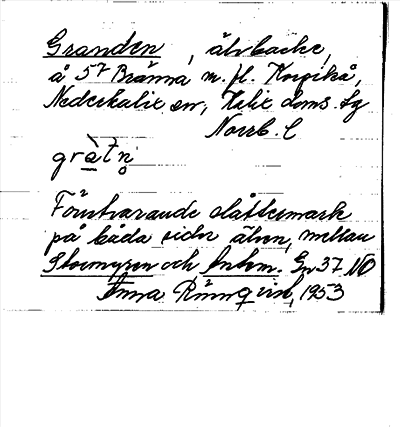 Granden, älvbacke,
å 57 Bränna m. fl. Korpikå,
Nederkalix sn, Kalix doms. lg
Norrb. l
gràtn̥
Förutvarande slåttermark
på båda sidor älven, mellan
Stormyren och En 37 NO
Anna Rönnqvist, 1953